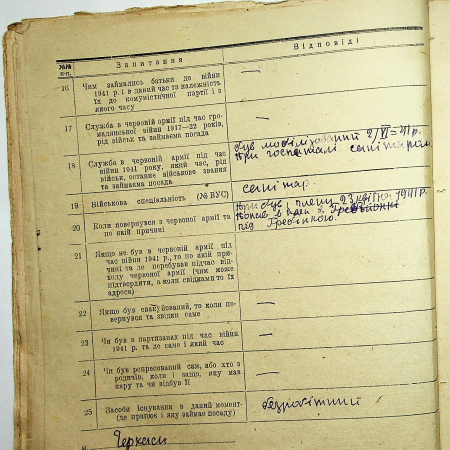 №№ п-п.
Запитання
Відповіді
16
Чим займались батьки до війни
1941 р. і в даний час та належність
їх до комуністичної партії і з
якого часу
—
17
Служба в червоній армії під час гро-
мадянської війни 1917—22 років,
рід військ та займаєма посада
—
18
Служба в червоній армії під час
війни 1941 року, який час, рід
військ, останнє військове звання
та займаєма посада
був мобілізований
41 р.
При госпиталі санітаром
19
Військова спеціяльність (№ ВУС)
санітар
20
Коли повернувся з червоної армії та
по якій причині
1941 р.
під Гребінкою.
21
Якщо не був в червоній армії під
час війни 1941 р., то по якій при-
чині та де перебував підчас від-
ходу червоної армії (чим може
підтвердити, а коли свідками то їх
адреса)
—
22
Якщо був евакуйований, то коли по-
вернувся та звідки саме
—
23
Чи був в партизанах під час війни
1941 р. де саме і який час
—
24
Чи був репресований сам, або хто з
родичів, коли і защо, яку мав
кару та чи відбув її
—
25
Засоби існування в даний момент-
(де працює і яку займає посаду)
безробітний
м.
Черкаси